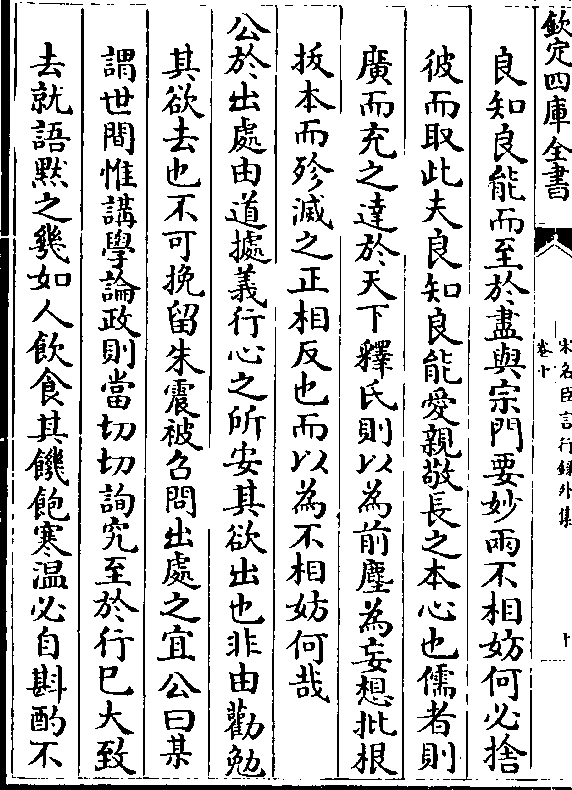 欽定四庫全書
宋名臣言行録外集
卷十
十
良知良能而至於盡與宗門要妙兩不相妨何必捨
彼而取此夫良知良能愛親敬長之本心也儒者則
廣而充之達於天下釋氏則以為前塵為妄想批根
拔本而殄滅之正相反也而以為不相妨何哉
公於出處由道據義行心之所安其欲出也非由勸勉
其欲去也不可挽留朱震被召問出處之宜公曰某
謂世間惟講學論政則當切切詢究至於行已大致
去就語黙之幾如人飲食其饑飽寒温必自斟酌不